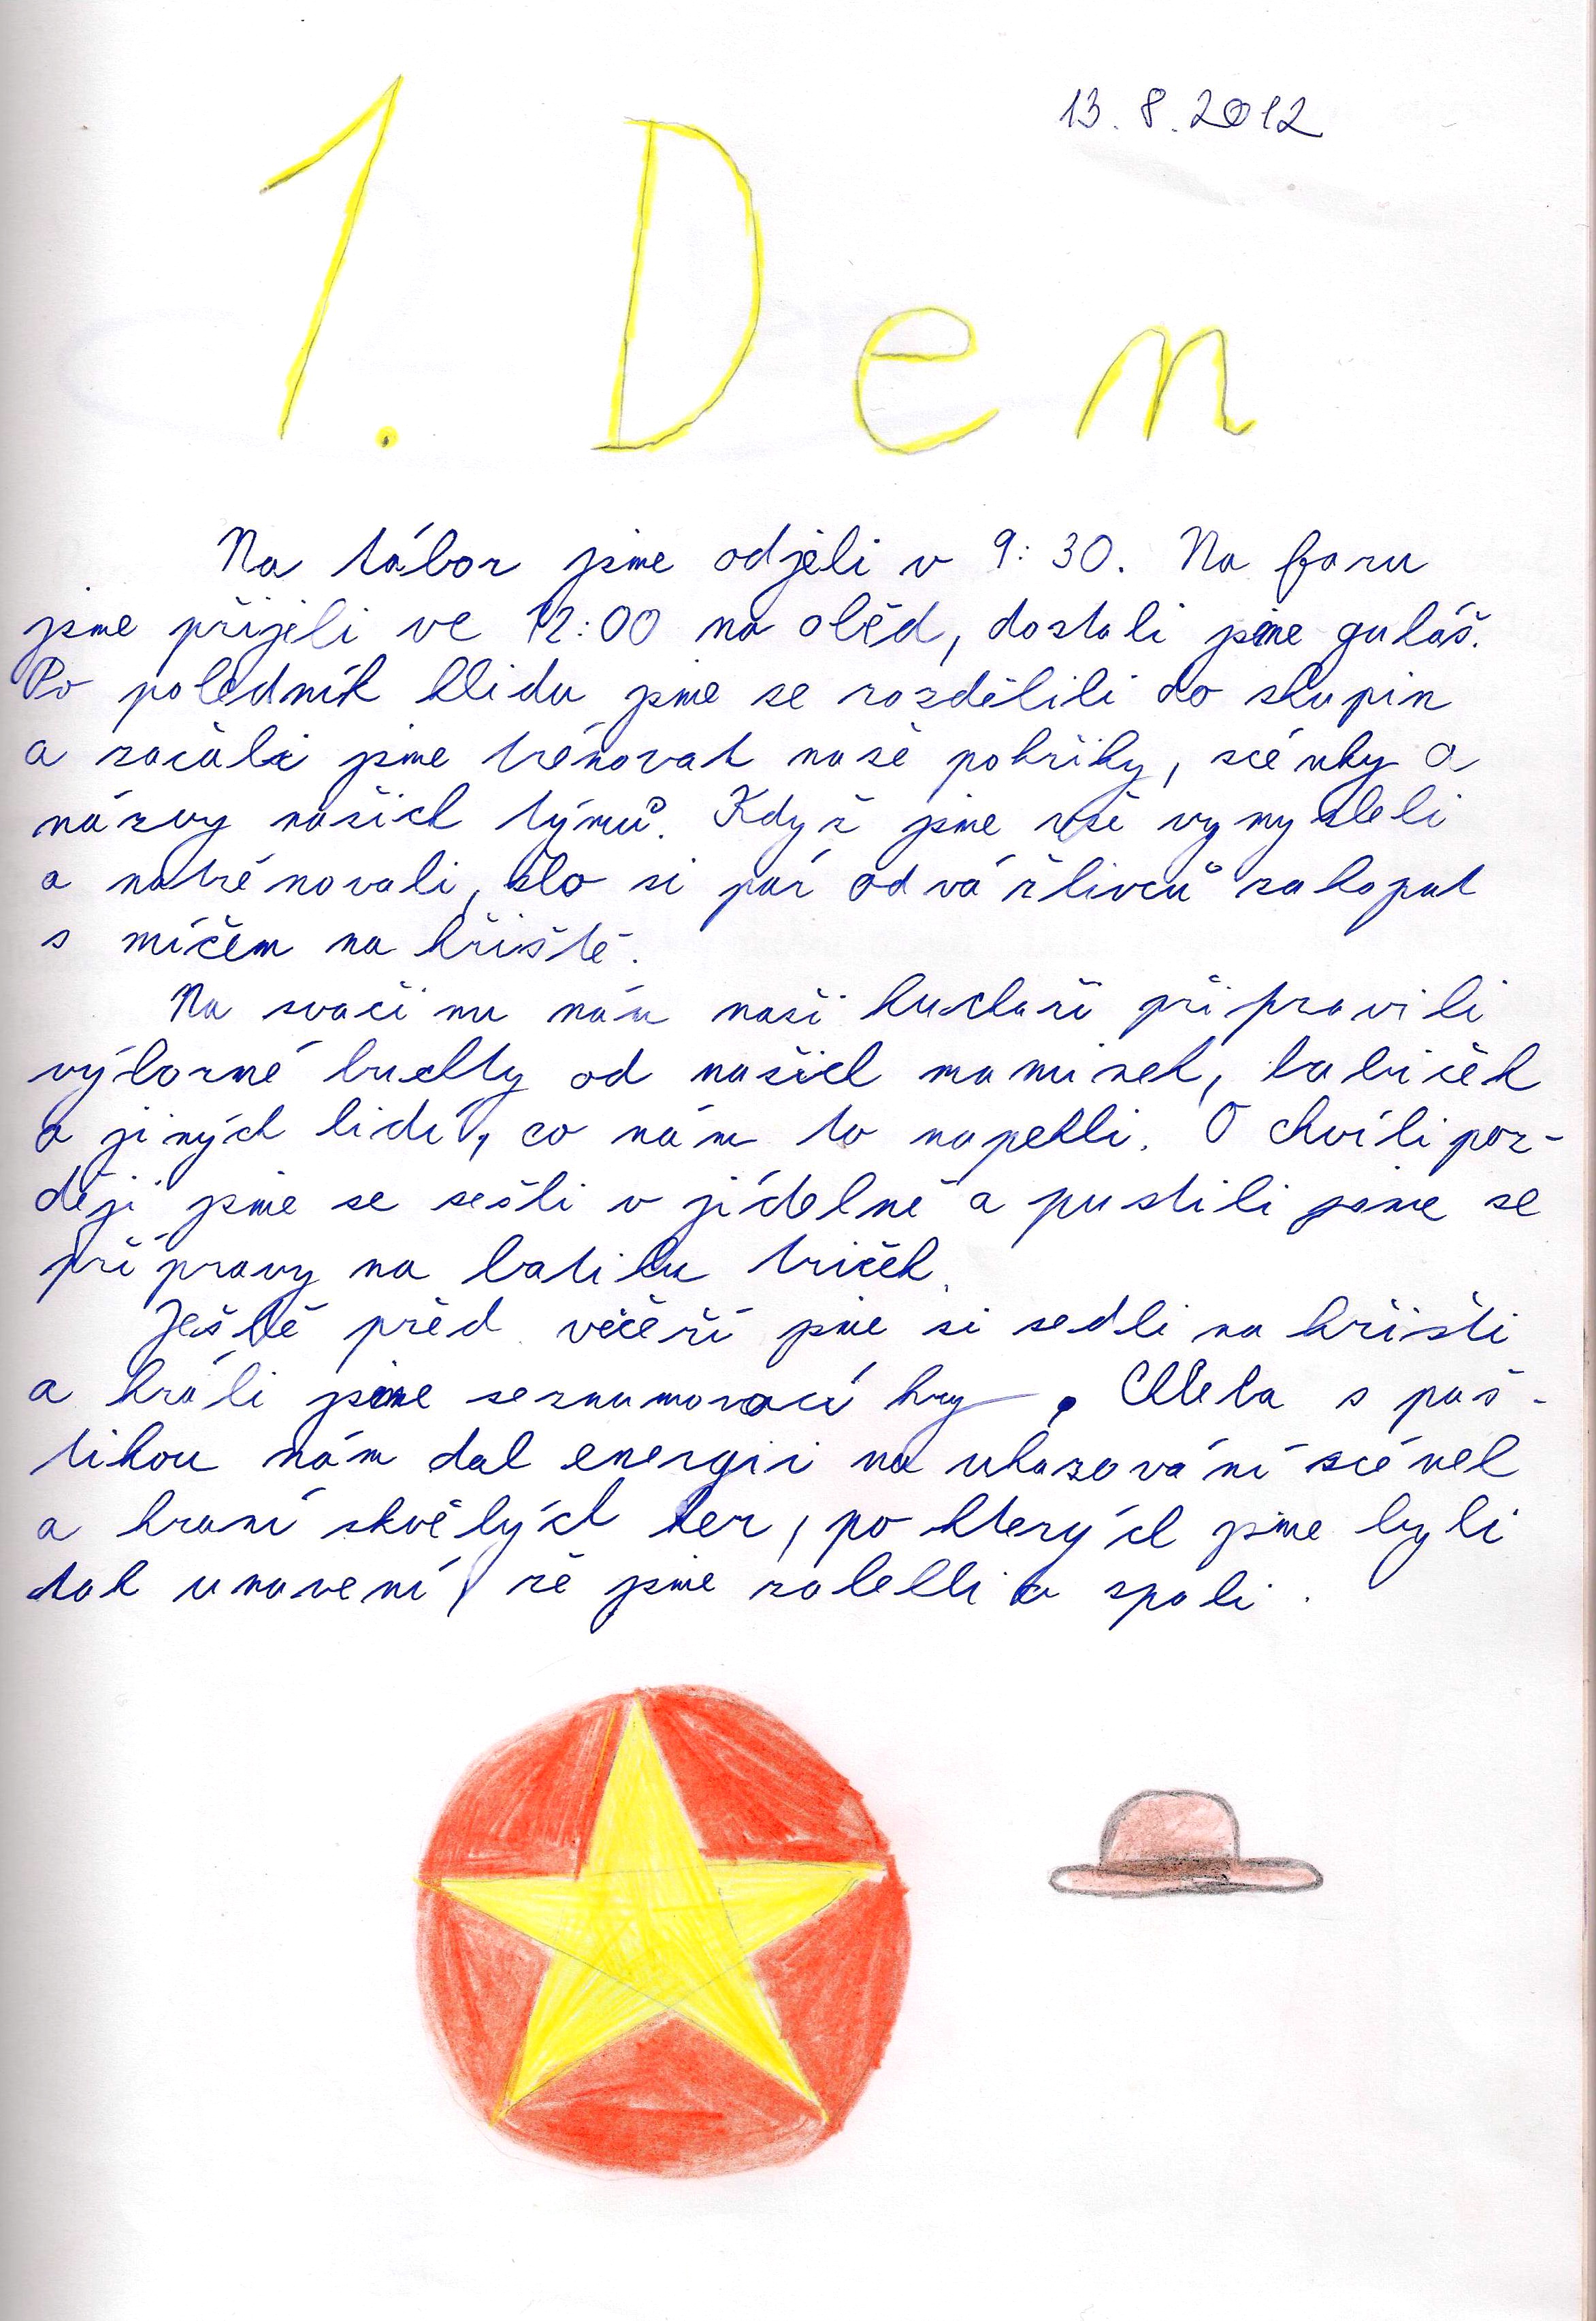 13. 8. 2012
1. Den
Na tábor jsme odjeli v 9:30. Na faru
jsme přijeli ve 12:00 na oběd, dostali jsme guláš.
Po poledním klidu jsme se rozdělili do skupin
a začali jsme trénovat naše pokřiky, scénky a
názvy našich týmů. Když jsme vše vymysleli
a natrénovali, šlo si pár odvážlivců zakopat
s míčem na hřiště.
Na svačinu nám naši kuchaři připravili
výborné buchty od našich maminek, babiček
a jiných lidí, co nám to napekli. O chvíli poz-
ději jsme se sešli v jídelně a pustili jsme se
přípravy na batiku triček.
Ještě před večeří jsme si sedli na hřišti
a hráli jsme seznamovací hry. Chleba s paš-
tikou nám dal energii na ukazování scének
a hraní skvělých her, po kterých jsme byli
tak unavení, že jsme zalehli a spali.